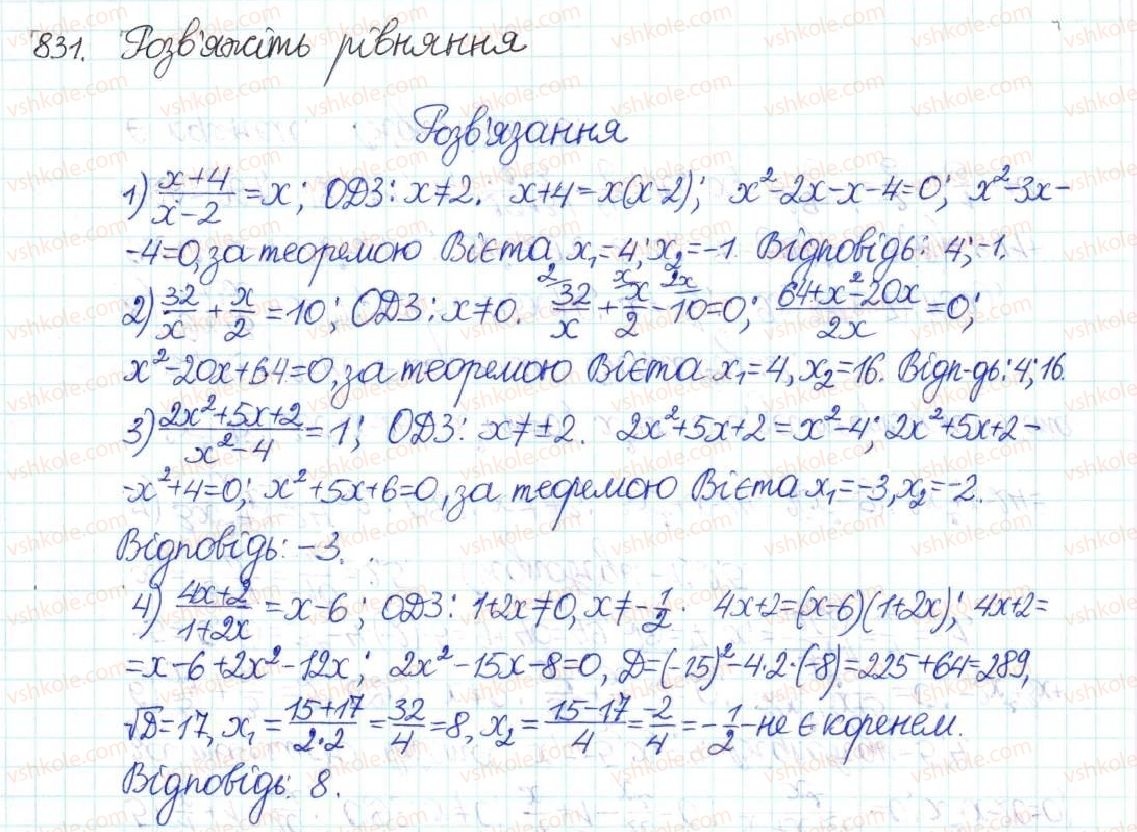 831. Розв'яжіть рівняння
Розв'язання
1) (x+4)/(x-2) = x; ОДЗ: x≠2. x+4=x(x-2); x²-2x-x-4=0; x²-3x-
-4=0, за теоремою Вієта x₁=4; x₂=-1. Відповідь: 4; -1.
2) 32/x + x/2 = 10; ОДЗ: x≠0. ²32/x + ˣx/2 - ²ˣ10=0; (64+x²-20x)/2x = 0;
x²-20x+64=0, за теоремою Вієта x₁=4, x₂=16. Відп-дь: 4; 16.
3) (2x²+5x+2)/(x²-4) = 1; ОДЗ: x≠±2. 2x²+5x+2=x²-4; 2x²+5x+2-
-x²+4=0; x²+5x+6=0, за теоремою Вієта x₁=-3, x₂=-2.
Відповідь: -3.
4) (4x+2)/(1+2x) = x-6; ОДЗ: 1+2x≠0, x≠-1/2. 4x+2=(x-6)(1+2x); 4x+2=
=x-6+2x²-12x; 2x²-15x-8=0, D=(-15)²-4·2·(-8)=225+64=289,
√D=17, x₁=(15+17)/(2·2)=32/4=8, x₂=(15-17)/4=-2/4=-1/2-не є коренем.
Відповідь: 8.